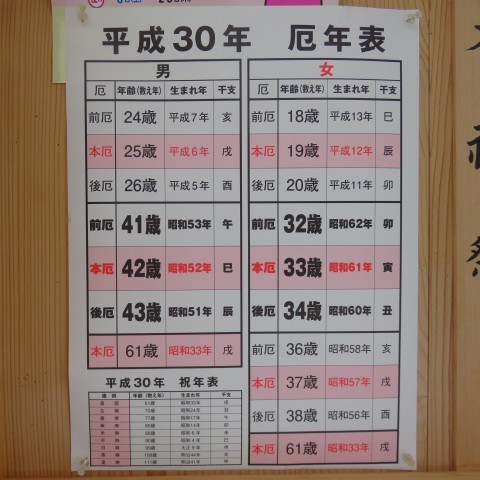 平成30年 厄年表
男
厄 年齢(数え年) 生まれ年 干支
前厄 24歳 平成7年 亥
本厄 25歳 平成6年 戌
後厄 26歳 平成5年 酉
前厄 41歳 昭和53年 午
本厄 42歳 昭和52年 巳
後厄 43歳 昭和51年 辰
本厄 61歳 昭和33年 戌
女
厄 年齢(数え年) 生まれ年 干支
前厄 18歳 平成13年 巳
本厄 19歳 平成12年 辰
後厄 20歳 平成11年 卯
前厄 32歳 昭和62年 卯
本厄 33歳 昭和61年 寅
後厄 34歳 昭和60年 丑
前厄 36歳 昭和58年 亥
本厄 37歳 昭和57年 戌
後厄 38歳 昭和56年 酉
本厄 61歳 昭和33年 戌
平成30年 祝年表
年齢(数え年) 生まれ年 干支
61歳 昭和33年 戌